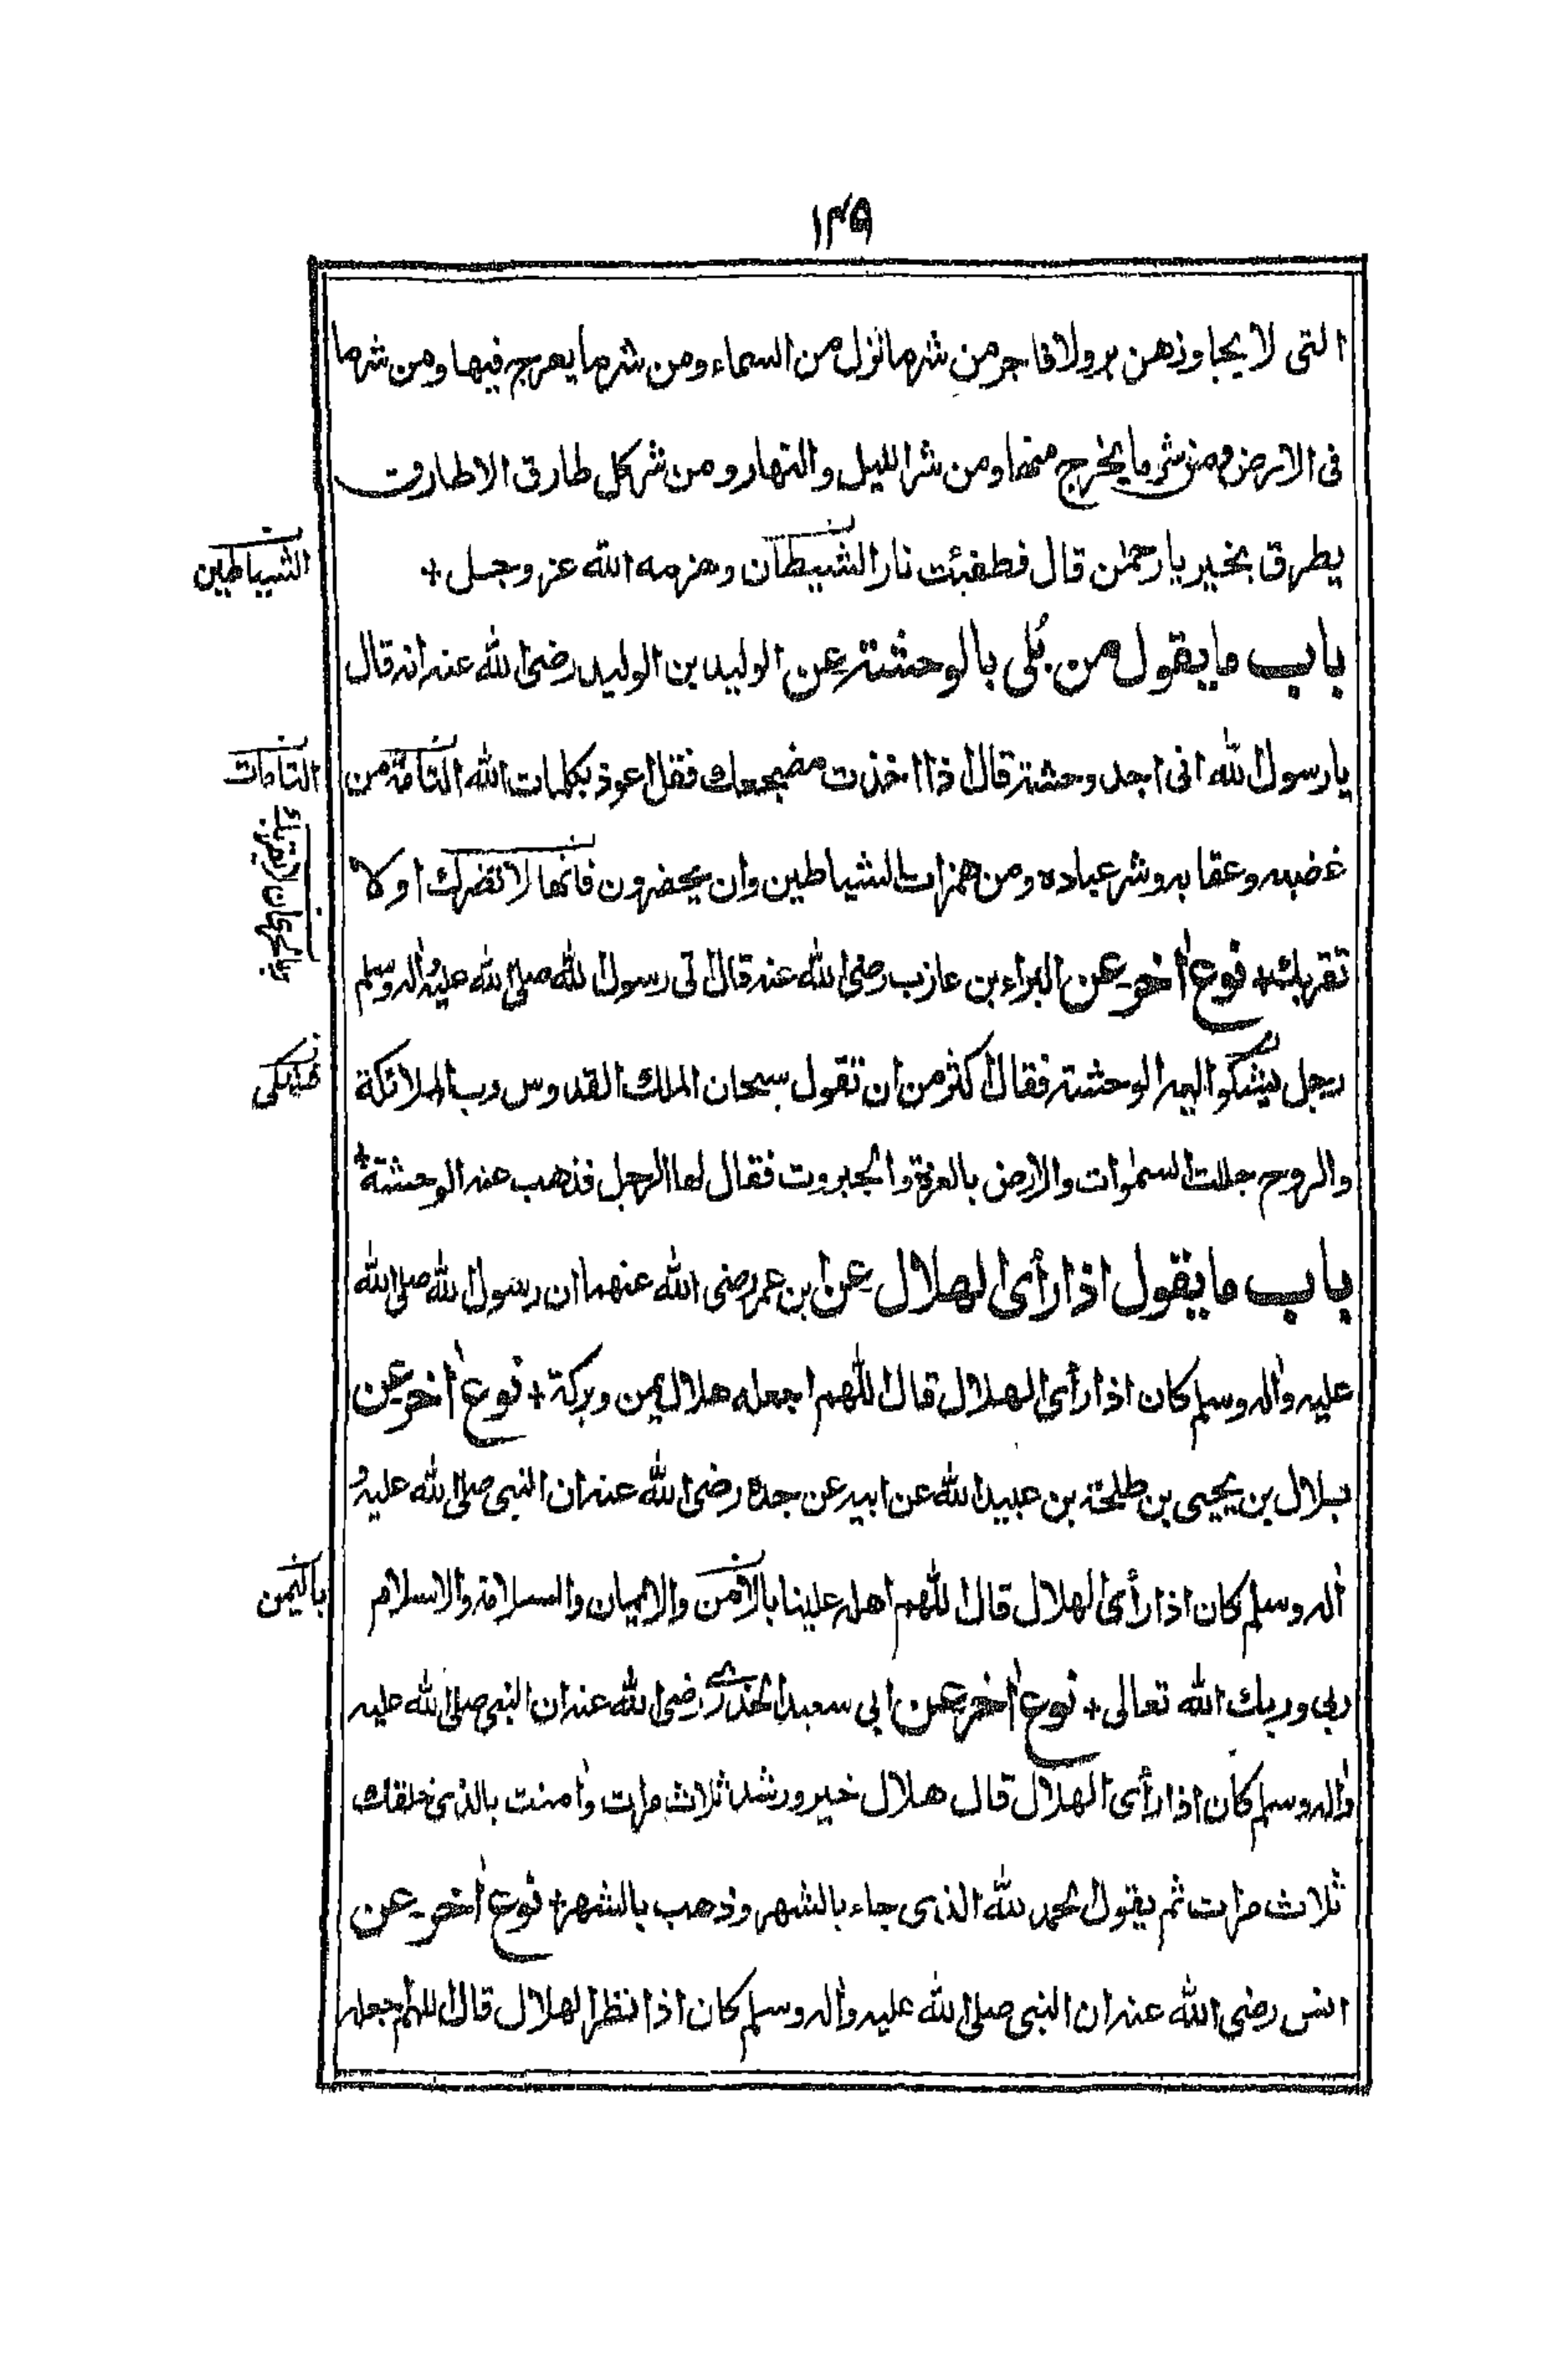 ١٤٩
التى لا يجاوزهن برولا فاجر من شرما نزل من السماء ومن شرما يعرج فيها ومن شرما
فى الارض ومن شر ما يخرج منها ومن شر الليل والنهار ومن شر كل طارق الا طارقا
يطرق بخير يا رحمٰن قال فطفئت نار الشيطان وهزمه الله عز وجل +
الشياطين
باب ما يقول من بُلى بالوحشة عن الوليد بن الوليد رضى الله عنه انه قال
يا رسول الله انى اجد وحشة قال اذا اخذت مضجعك فقل اعوذ بكلمات الله التامة من
التامات
غضبه وعقابه وشر عباده ومن همزات الشياطين وان يحضرون فانها لا تضرك او لا
تقربك + نوع اٰخر عن البراء بن عازب رضى الله عنه قال اتى رسول الله صلى الله عليه واٰله وسلم
رجل يشكو اليه الوحشة فقال اكثر من ان تقول سبحان الملك القدوس رب الملائكة
فشكى
والروح جللت السمٰوات والارض بالعزة والجبروت فقال لها الرجل فذهب عنه الوحشة +
باب ما يقول اذا رأى الهلال عن ابن عمر رضى الله عنهما ان رسول الله صلى الله
عليه واٰله وسلم كان اذا رأى الهلال قال اللهم اجعله هلال يمن وبركة + نوع اٰخر عن
بلال بن يحيى بن طلحة بن عبيد الله عن ابيه عن جده رضى الله عنه ان النبى صلى الله عليه و
اٰله وسلم كان اذا رأى الهلال قال اللهم اهله علينا بالامن والايمان والسلامة والاسلام
باليمن
ربى وربك الله تعالى + نوع اٰخر عن ابى سعيد الخدرى رضى الله عنه ان النبى صلى الله عليه
واٰله وسلم كان اذا رأى الهلال قال هلال خير ورشد ثلاث مرات واٰمنت بالذى خلقك
ثلاث مرات ثم يقول الحمد لله الذى جاء بالشهر وذهب بالشهر + نوع اٰخر عن
انس رضى الله عنه ان النبى صلى الله عليه واٰله وسلم كان اذا نظر الهلال قال اللهم اجعله